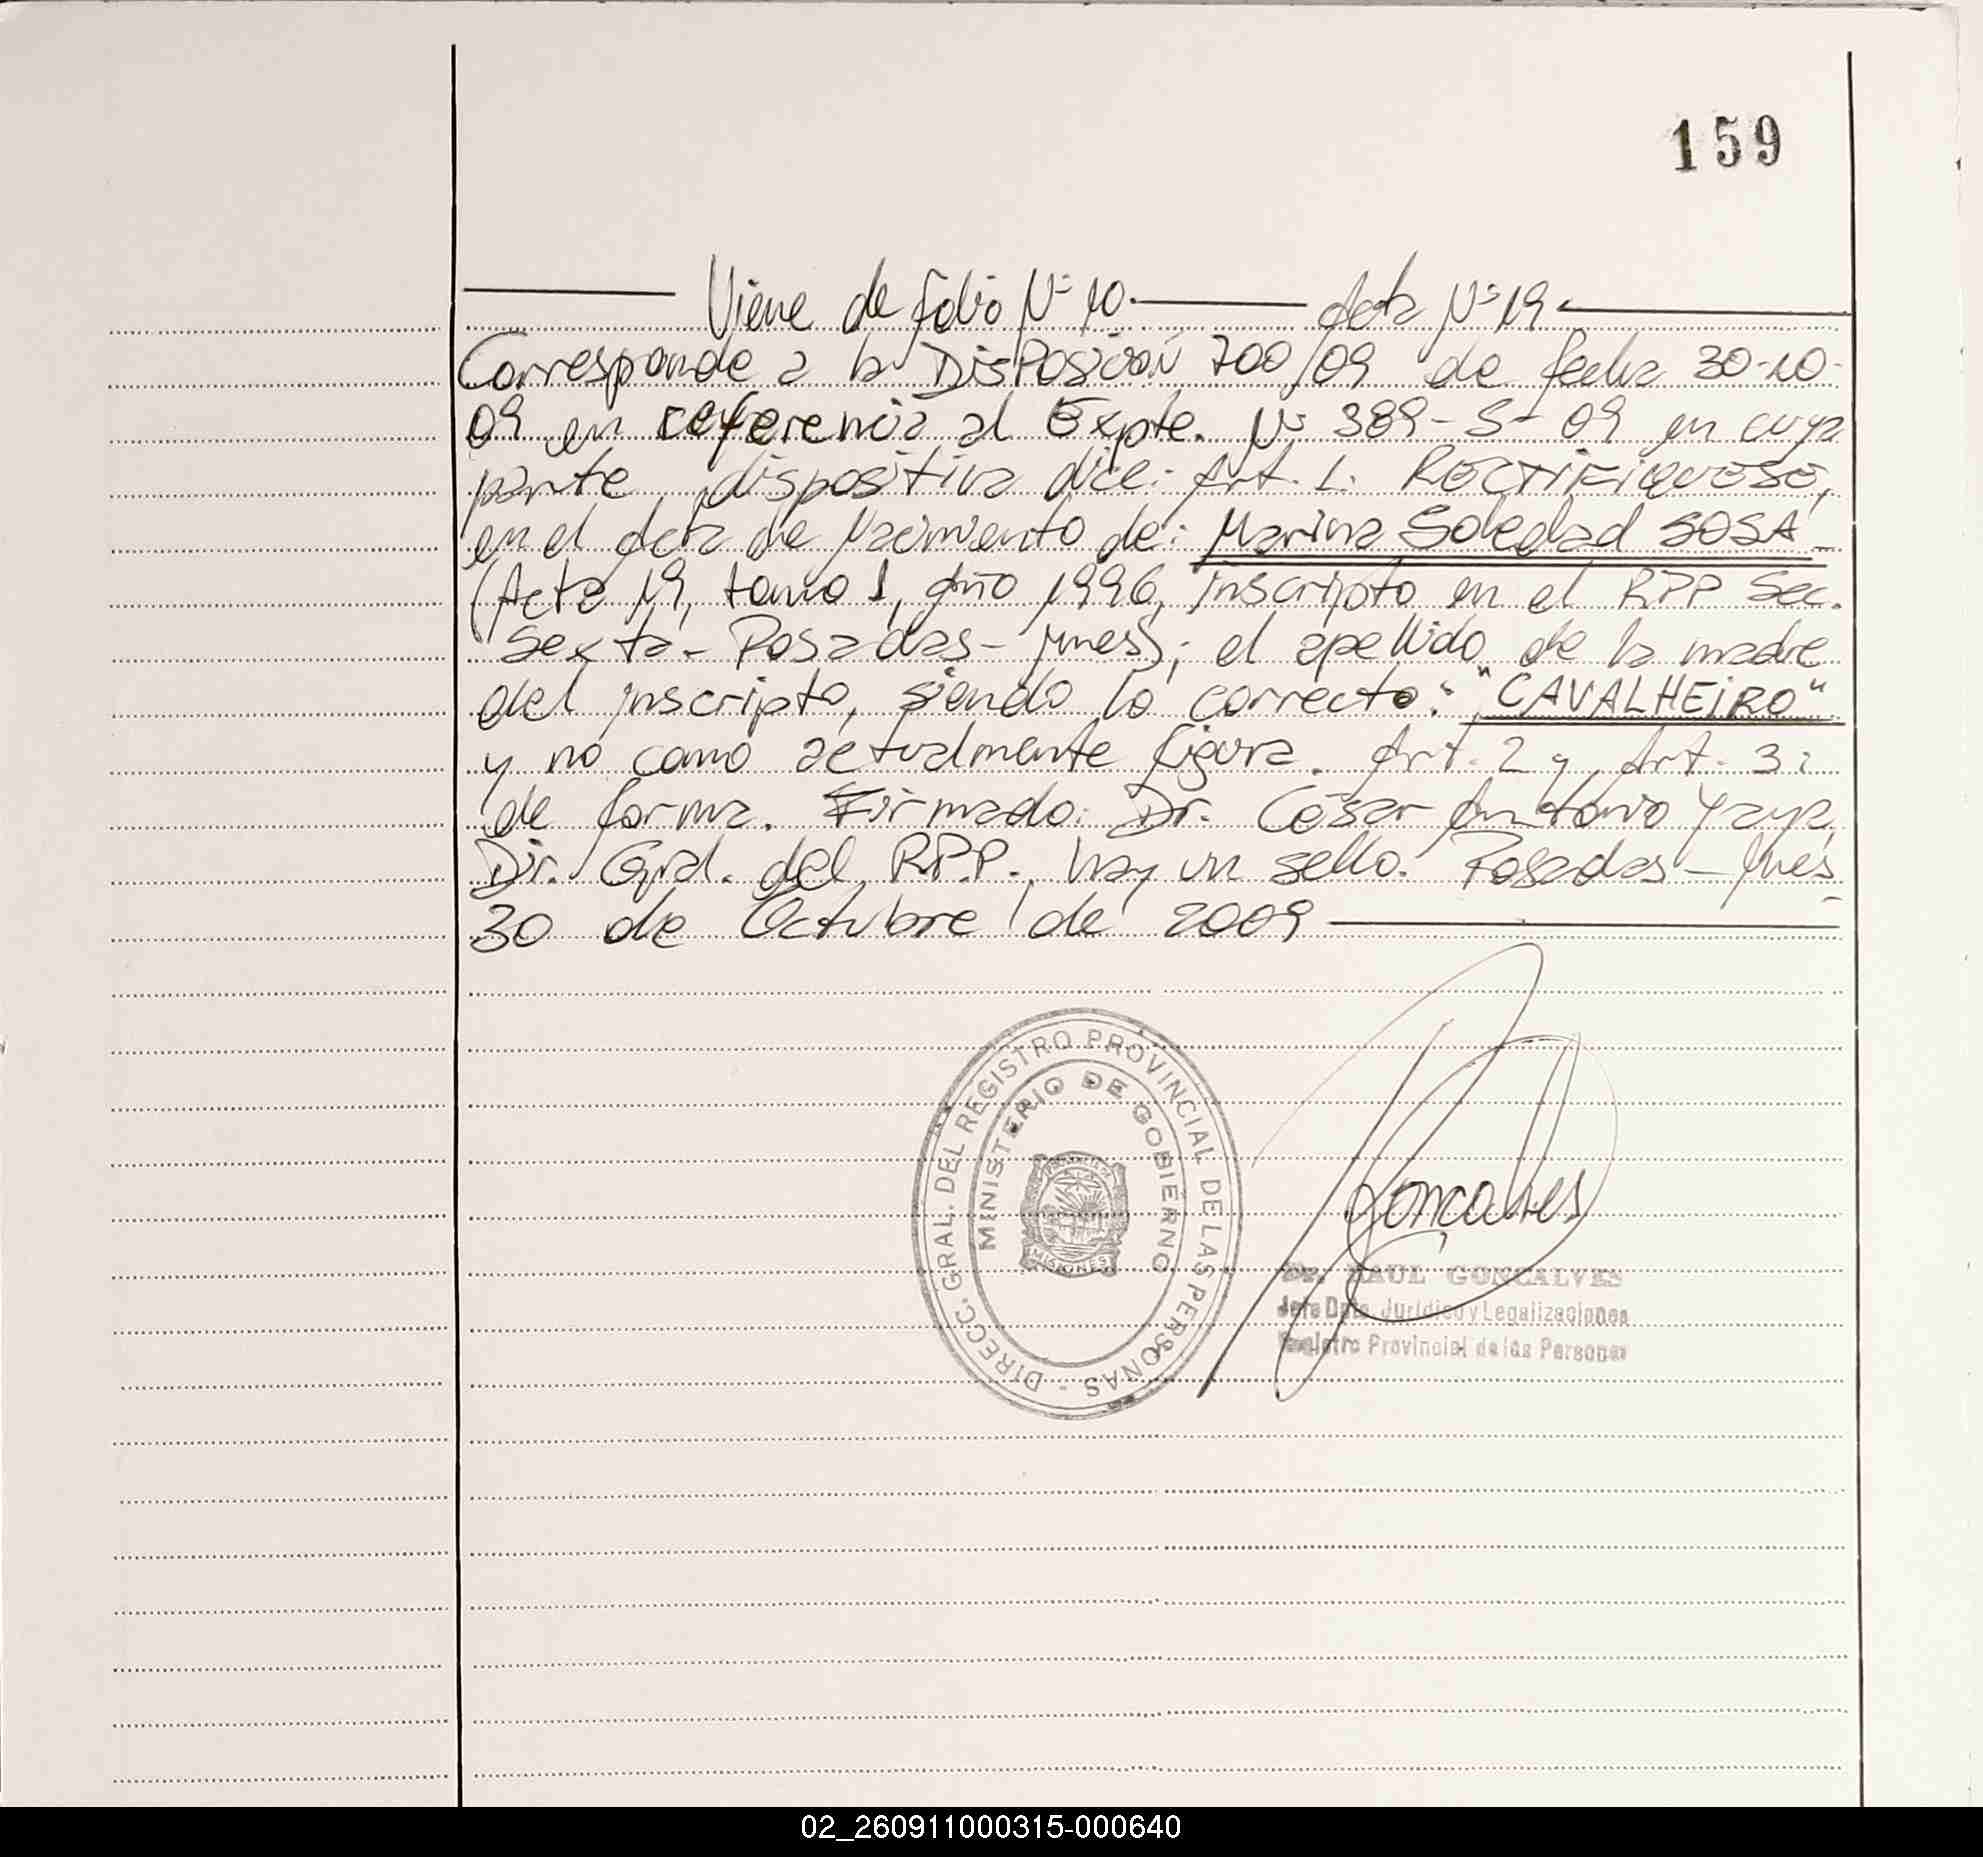 159
Viene de folio Nº 10. Acta Nº 19
Corresponde a la DISPOSICIÓN 700/09 de fecha 30-10-
09 en referencia al Expte. Nº 389-S-09 en cuya
parte dispositiva dice: Art. 1. RECTIFIQUESE,
en el Acta de Nacimiento de: Marina Soledad SOSA
(Acta 19, tomo 1, Año 1996, inscripto en el RPP Sec.
Sexta - Posadas - Mnes); el apellido de la madre
del inscripto, siendo lo correcto: "CAVALHEIRO"
y no como actualmente figura. Art. 2 y Art. 3:
de forma. Firmado: Dr. César Antonio Yaya,
Dir. Gral. del RPP., hay un sello. Posadas - Mnes
30 de Octubre de 2009
DIRECC. GRAL. DEL REGISTRO PROVINCIAL DE LAS PERSONAS -
MINISTERIO DE GOBIERNO
MISIONES
Goncalves
Dr. RAUL GONCALVES
Jefe Dpto. Jurídico y Legalizaciones
Registro Provincial de las Personas
02_260911000315-000640